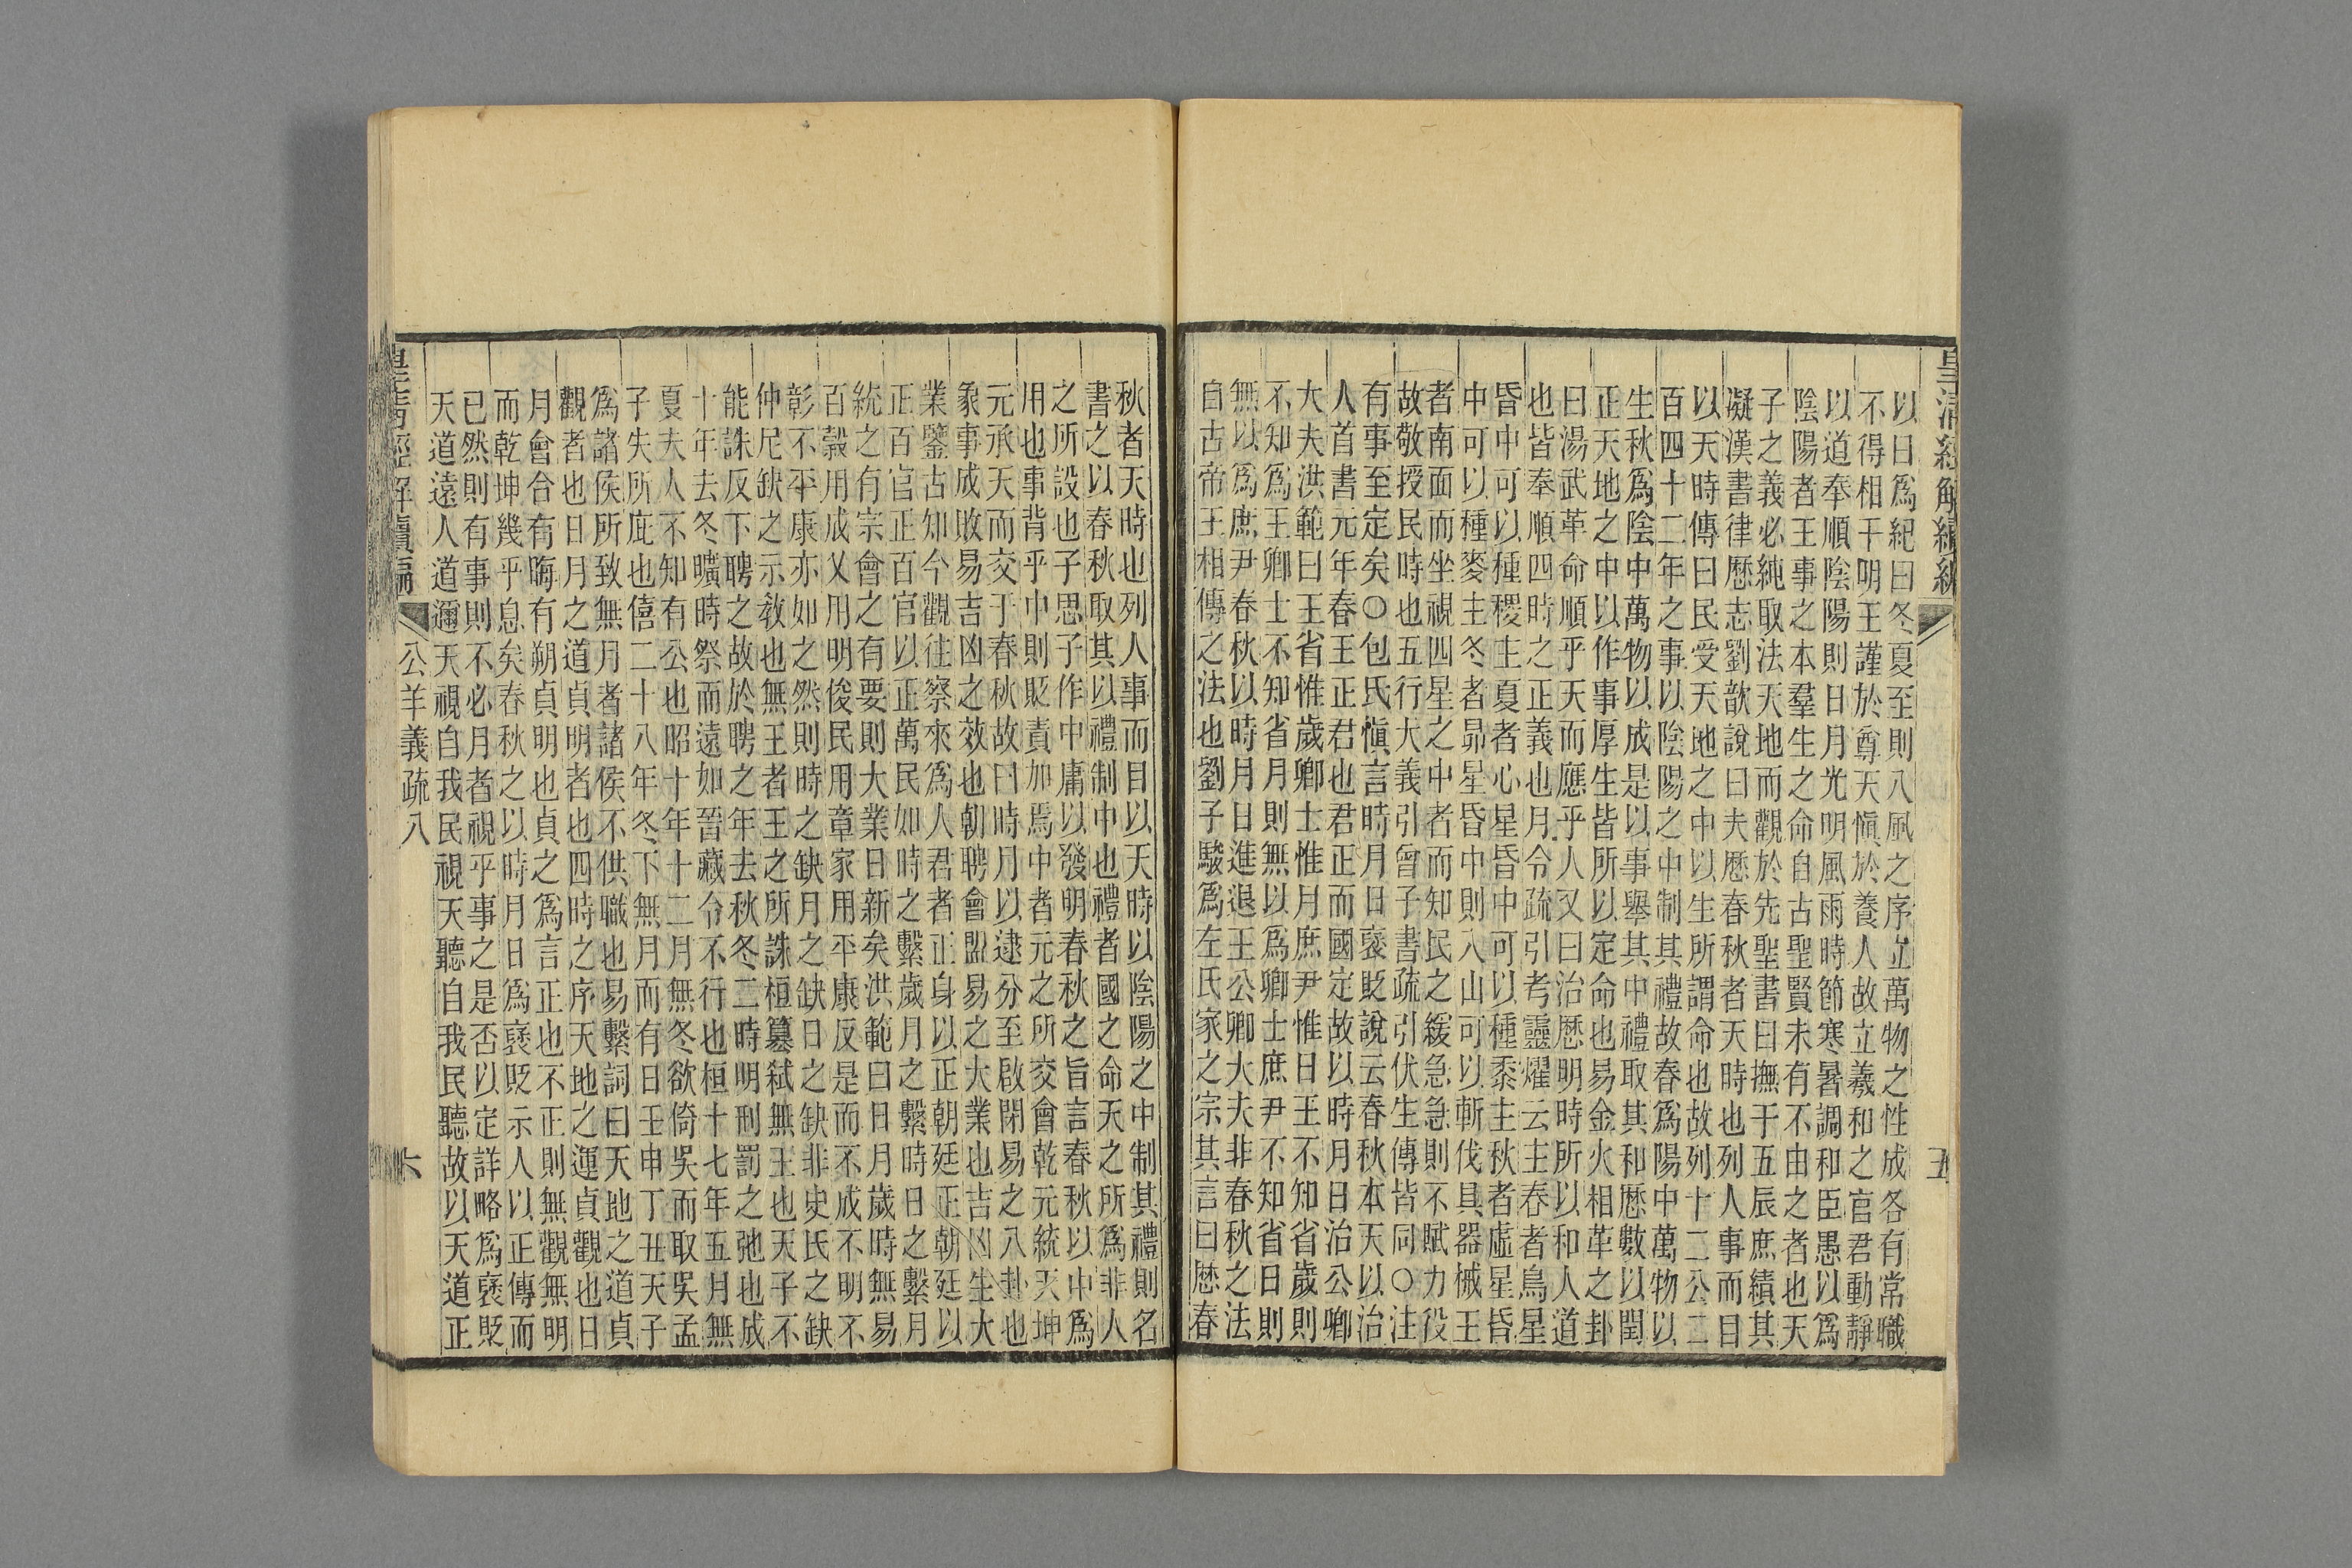 皇清經解續編
五
以日爲紀日冬夏至則八風之序立萬物之性成各有常職
不得相干明王謹於尊天愼於養人故立羲和之官君動靜
以道奉順陰陽則日月光明風雨時節寒暑調和臣愚以爲
陰陽者王事之本羣生之命自古聖賢未有不由之者也天
子之義必純取法天地而觀於先聖書曰撫于五辰庶績其
凝漢書律歷志劉歆說曰夫歷春秋者天時也列人事而目
以天時傳曰民受天地之中以生所謂命也故列十二公二
百四十二年之事以陰陽之中制其禮故春爲陽中萬物以
生秋爲陰中萬物以成是以事舉其中禮取其和歷數以閏
正天地之中以作事厚生皆所以定命也易金火相革之卦
曰湯武革命順乎天而應乎人又曰治歷明時所以和人道
也皆奉順四時之正義也月令疏引考靈燿云主春者鳥星
昏中可以種稷主夏者心星昏中可以種黍主秋者虛星昏
中可以種麥主冬者昴星昏中則入山可以斬伐具器械王
者南面而坐視四星之中者而知民之緩急急則不賦力役
故敬授民時也五行大義引曾子書疏引伏生傳皆同○注
有事至定矣○包氏愼言時月日襃貶說云春秋本天以治
人首書元年春王正君也君正而國定故以時月日治公卿
大夫洪範曰王省惟歲卿士惟月庶尹惟日王不知省歲則
不知爲王卿士不知省月則無以爲卿士庶尹不知省日則
無以爲庶尹春秋以時月日進退王公卿大夫非春秋之法
自古帝王相傳之法也劉子駿爲左氏家之宗其言曰歷春
秋者天時也列人事而目以天時以陰陽之中制其禮則名
書之以春秋取其以禮制中也禮者國之命天之所爲非人
之所設也子思子作中庸以發明春秋之旨言春秋以中爲
用也事背乎中則貶責加焉中者元之所交會乾元統天坤
元承天而交于春秋故曰時月以逮分至啟閉易之八卦也
象事成敗易吉凶之效也朝聘會盟易之大業也吉凶生大
業鑒古知今觀往察來爲人君者正身以正朝廷正朝廷以
正百官正百官以正萬民如時之繫歲月之繫時日之繫月
統之有宗會之有要則大業日新矣洪範曰日月歲時無易
百穀用成乂用明俊民用章家用平康反是而不成不明不
彰不平康亦如之然則時之缺月之缺日之缺非史氏之缺
仲尼缺之示教也無王者王之所誅桓篡弑無王也天子不
能誅反下聘之故於聘之年去秋冬二時明刑罰之弛也成
十年去冬曠時祭而遠如晉藏令不行也桓十七年五月無
夏夫人不知有公也昭十年十二月無冬欲倚吳而取吳孟
子失所庇也僖二十八年冬下無月而有日壬申丁丑天子
爲諸侯所致無月者諸侯不供職也易繫詞曰天地之道貞
觀者也日月之道貞明者也四時之序天地之運貞觀也日
月會合有晦有朔貞明也貞之爲言正也不正則無觀無明
而乾坤幾乎息矣春秋之以時月日爲襃貶示人以正傳而
已然則有事則不必月者視乎事之是否以定詳略爲襃貶
天道遠人道邇天視自我民視天聽自我民聽故以天道正
皇淸經解續編
公羊義疏八
六